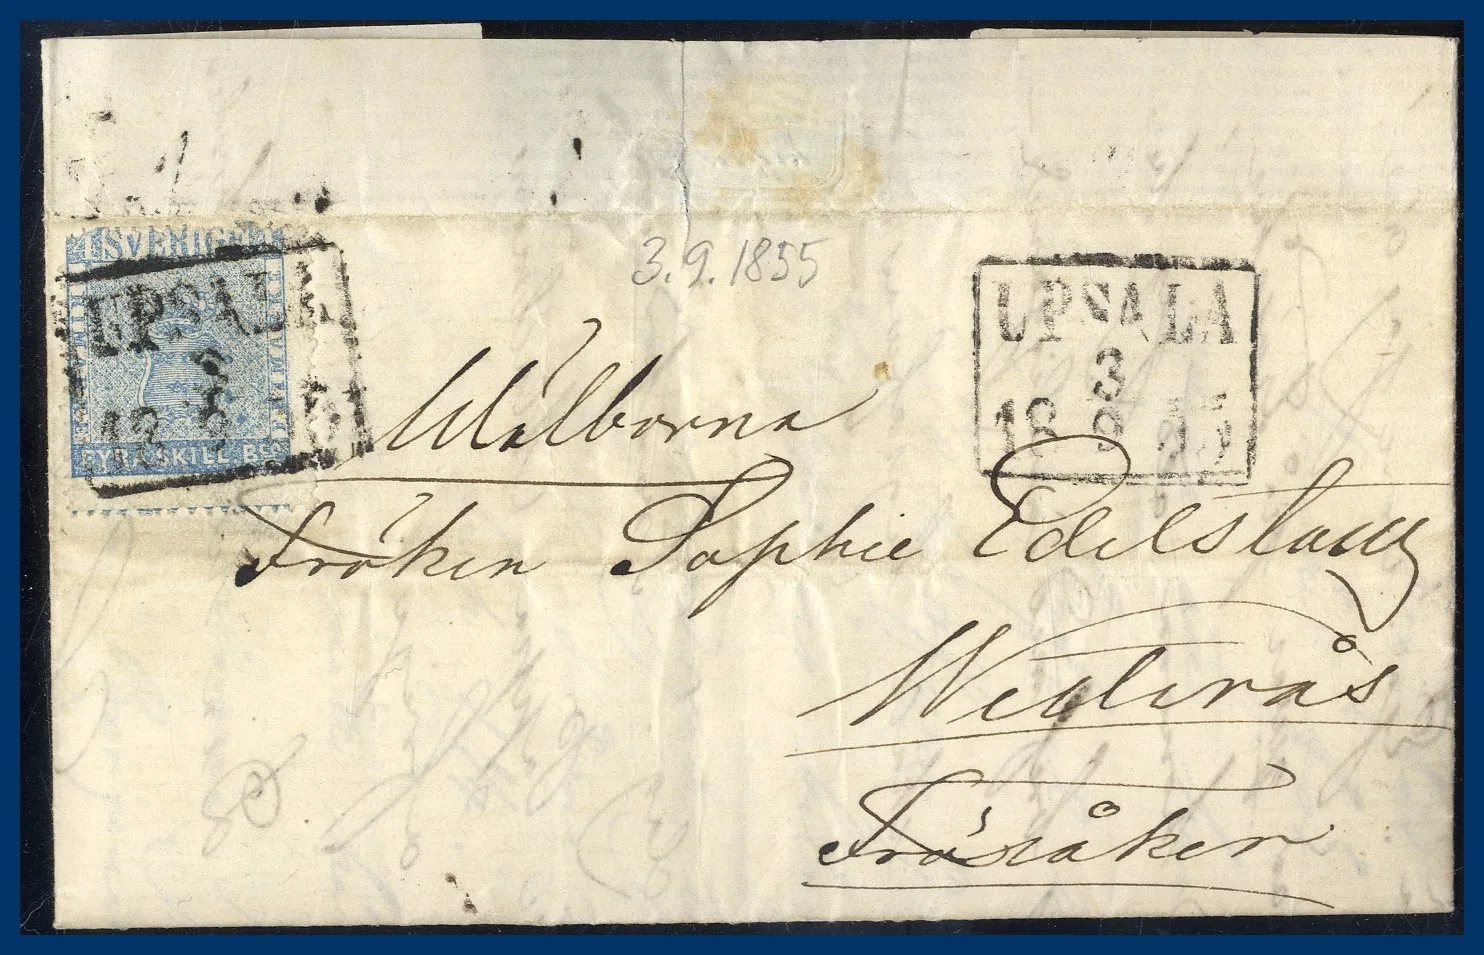 SVERIGE
FYRA SKILL Bco
UPSALA
3
18 9 55
3.9.1855
UPSALA
3
18 9 55
Wälborna
Fröken Sophie Edelstam
Westerås
Frösåker